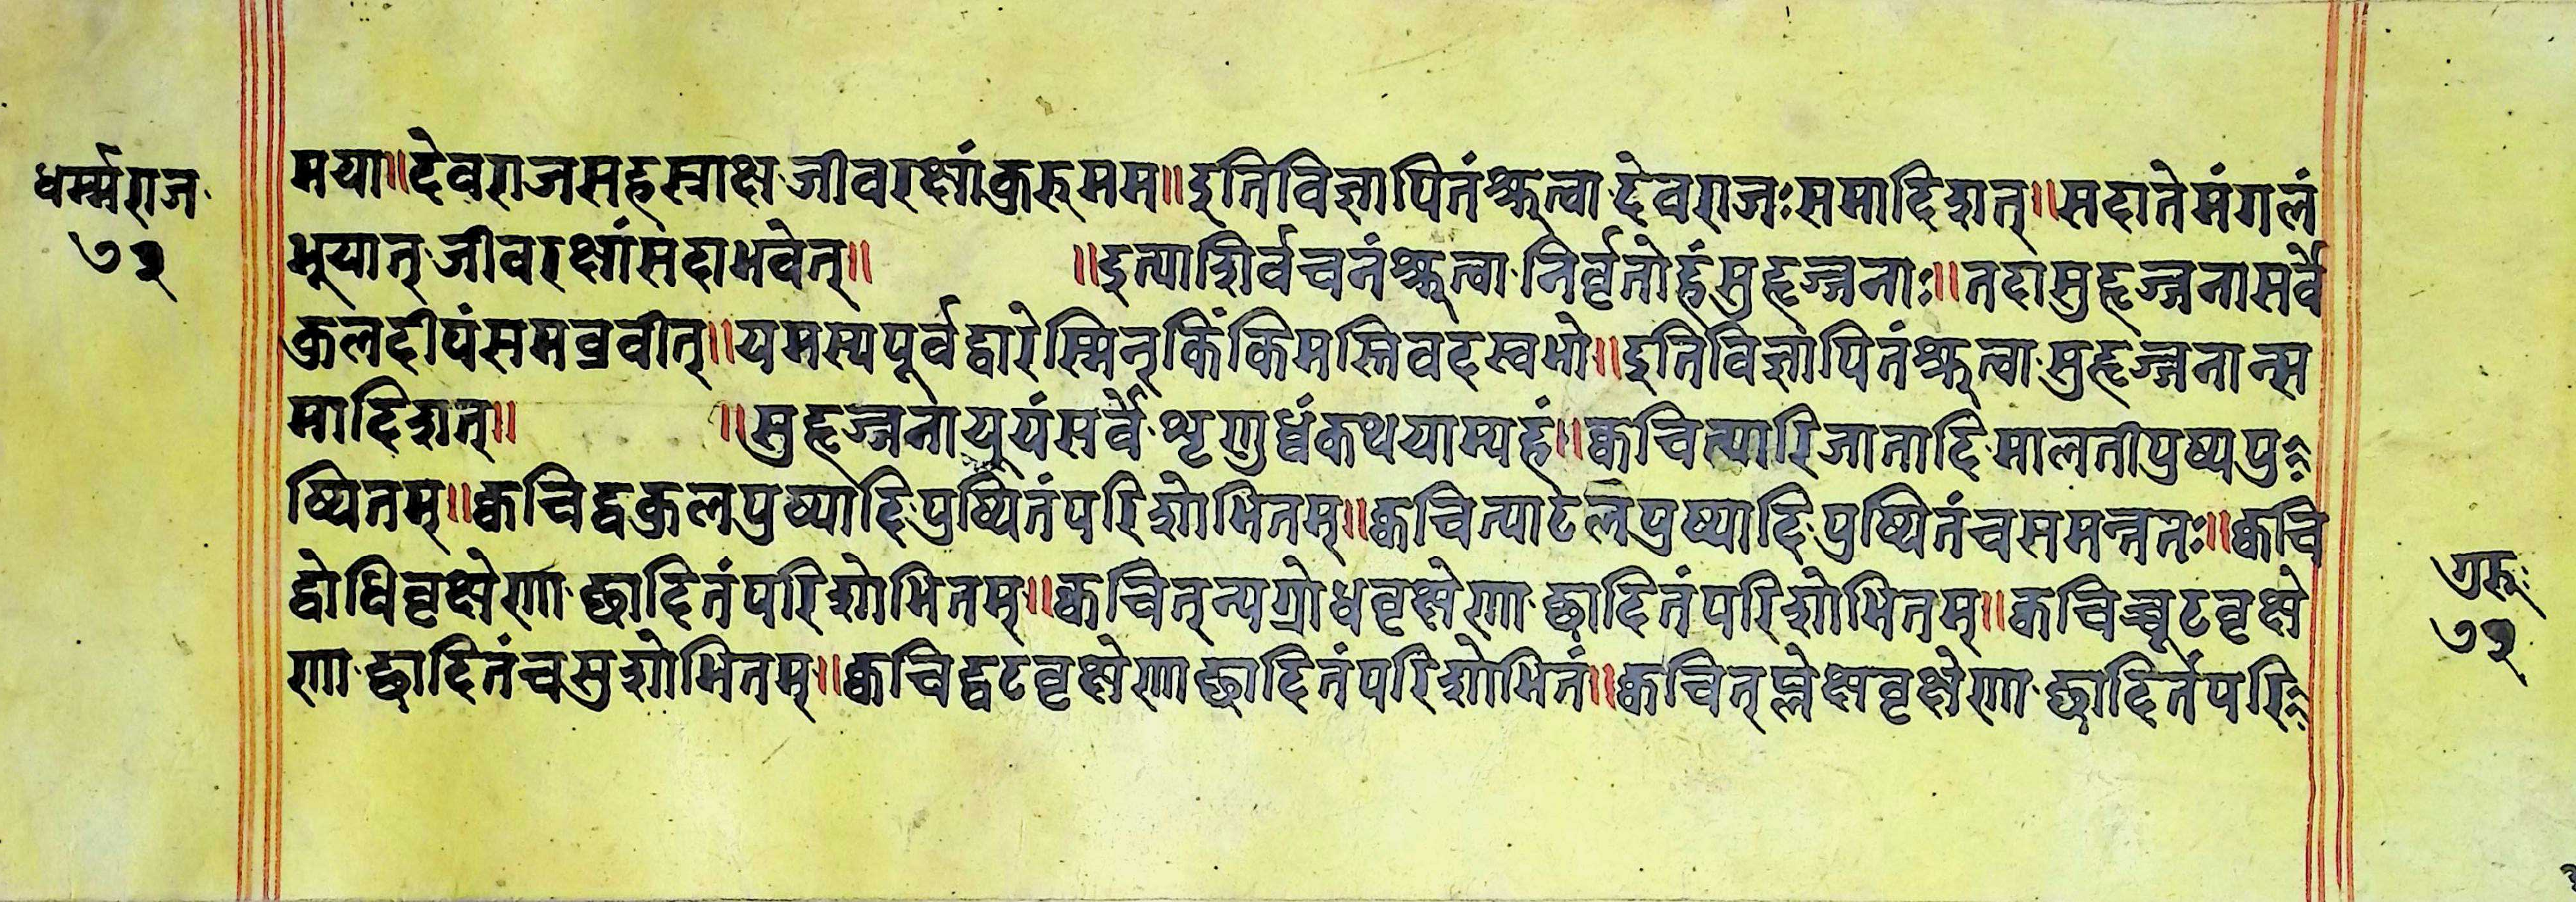 धर्म्मराज
७२
मया॥देवराजसहस्त्राक्ष·जीवरक्षांकुरुमम॥इतिविज्ञापितंश्रुत्वा·देवराजःसमादिशत्॥सदातेमंगलं
भूयात्·जीवरक्षांसदाभवेत्॥ ॥इत्याशिर्वचनंश्रुत्वा·निर्वृतोहंसुहृज्जनाः॥तदासुहृज्जनासर्वे
कुलदीपंसमव्रवीत्॥यमस्यपूर्वद्वारेस्मिन्किंकिमस्तिवदस्वभो॥इतिविज्ञापितंश्रुत्वा·सुहृज्जनान्स
मादिशत्॥ ॥सुहृज्जनायूयंसर्वे·शृणुध्वंकथयाम्यहं॥क्वचित्पारिजातादि·मालतीपुष्पपु
ष्पितम्॥क्वचिद्वकुलपुष्पादि·पुष्पितंपरिशोभितम्॥क्वचित्पाटलपुष्पादि·पुष्पितंचसमन्ततः॥क्वचि
द्वोधिवृक्षेणा·छादितंपरिशोभितम्॥क्वचित्न्यग्रोधवृक्षेणा·छादितंपरिशोभितम्॥क्वचिच्चूटवृक्षे
णा·छादितंचसुशोभितम्॥क्वचिद्वटवृक्षेणाछादितंपरिशोभितं॥क्वचित्प्लेक्षवृक्षेणा·छादितंपरि
गुरुः
७२